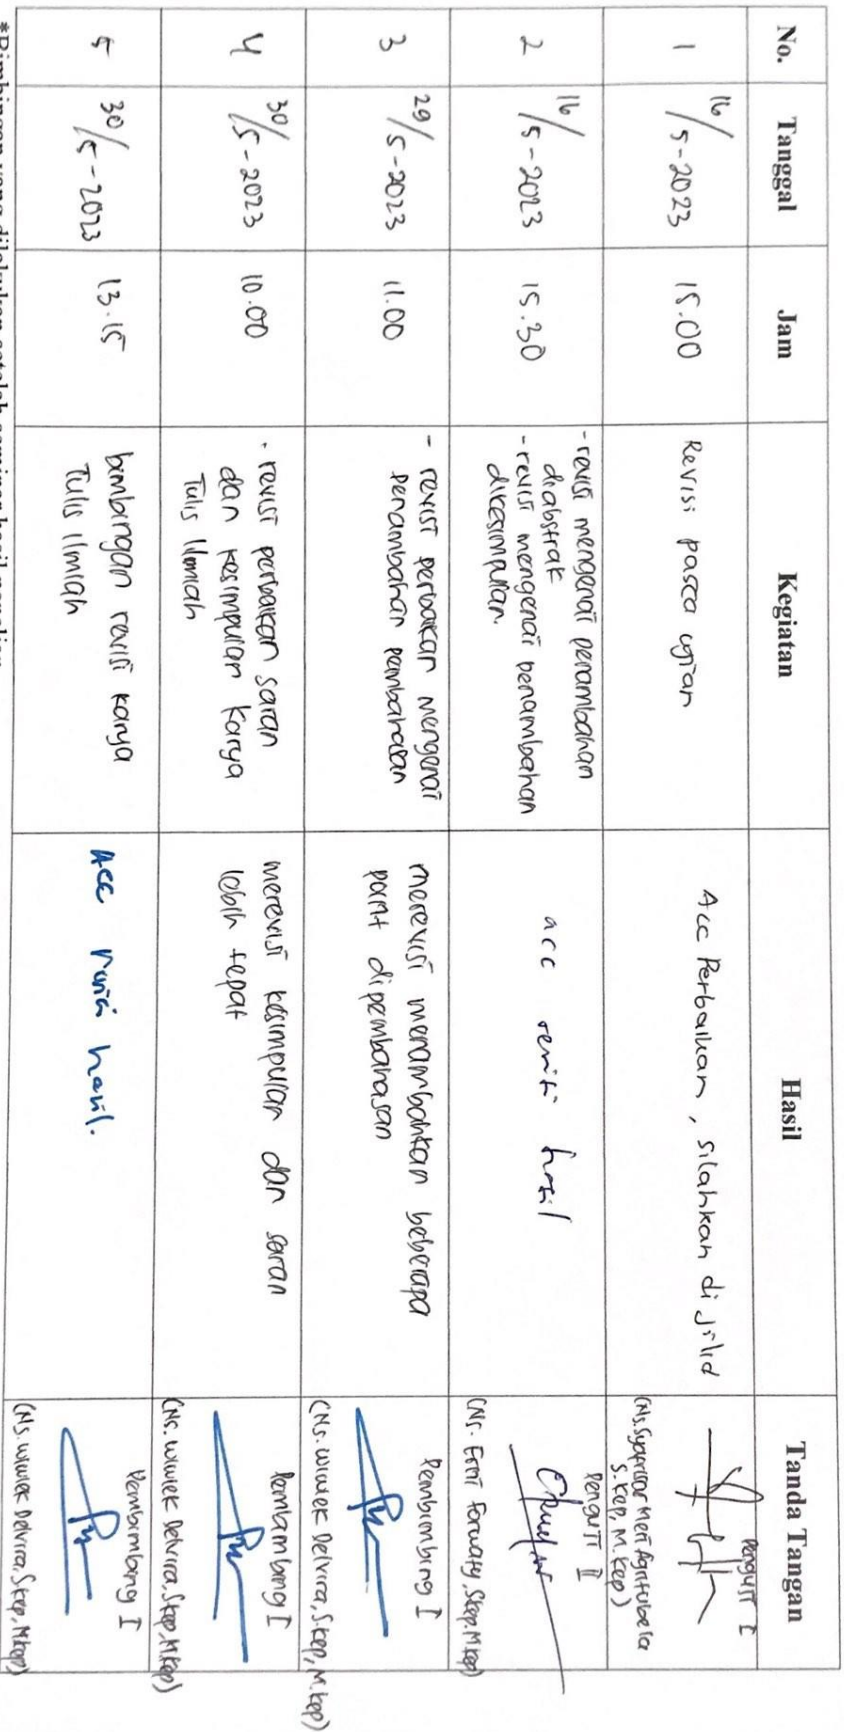 No. Tanggal Jam Kegiatan Hasil Tanda Tangan
1 16/5-2023 15.00 Revisi pasca ujian Acc Perbaikan, silahkan di jilid Penguji I
S.Kep, M.Kep)
2 16/5-2023 15.30 - revisi mengenai penambahan diabstrak
- revisi mengenai penambahan dikesimpulan.
acc revisi hasil Penguji II
3 29/5-2023 11.00 - revisi perbaikan mengenai
penambahan pembahasan
merevisi menambahkan beberapa
point dipembahasan
Pembimbing I
(Ns. Wiwiek Delvira, S.Kep, M.Kep)
4 30/5-2023 10.00 - revisi perbaikan saran
dan kesimpulan Karya
Tulis Ilmiah
merevisi kesimpulan dan saran
lebih tepat
Pembimbing I
(Ns. Wiwiek Delvira, S.Kep, M.Kep)
5 30/5-2023 13.15 bimbingan revisi karya
Tulis Ilmiah
Acc revisi hasil.
Pembimbing I
(Ns. Wiwiek Delvira, S.Kep, M.Kep)